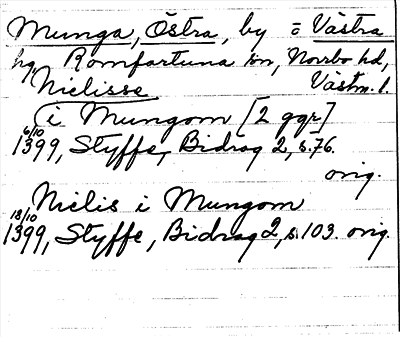 Munga, Östra, by = Västra
hg, Romfartuna sn, Norrbo hd,
Nielisse Västm. l.
(i Mungom [2 ggr]
6/10
1399, Styffe, Bidrag 2, s. 76.
orig.
Nielis i Mungom
18/10
1399, Styffe, Bidrag 2, s. 103. orig.